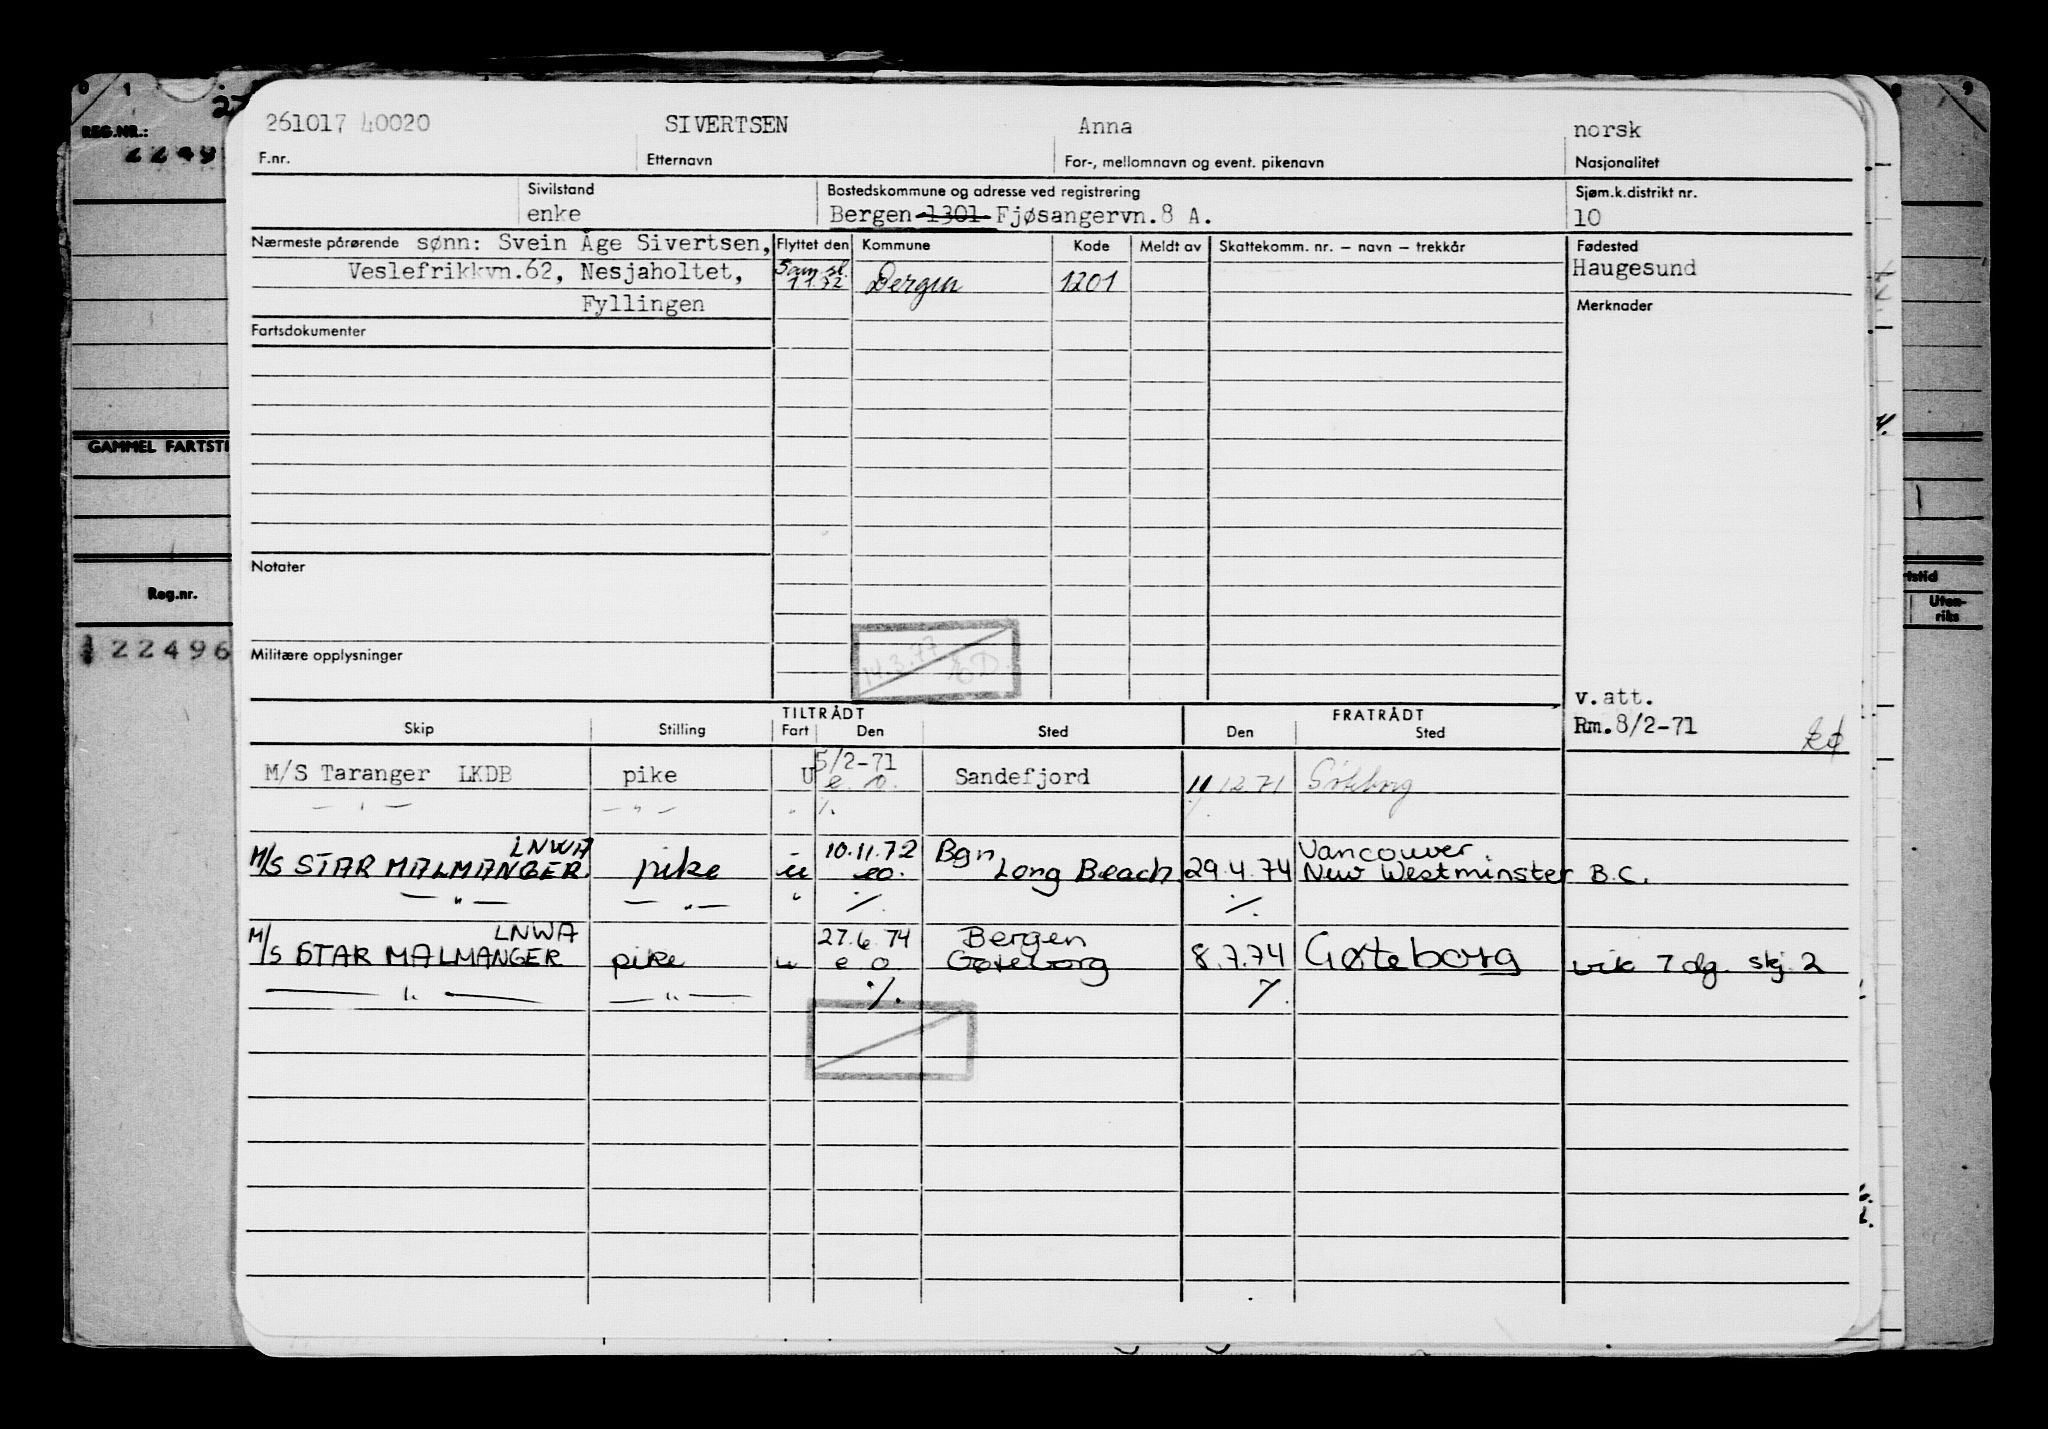 0 1 8 9
REG.NR.:
2249
GAMMEL FARTSTI
Reg.nr.
122496
rtstid
Uten-
riks
261017 40020 SIVERTSEN Anna norsk
F.nr. Etternavn For-, mellomnavn og event. pikenavn Nasjonalitet
Sivilstand Bostedskommune og adresse ved registrering Sjøm.k.distrikt nr.
enke Bergen 1301 Fjøsangervn.8 A. 10
Nærmeste pårørende sønn: Svein Åge Sivertsen, Flyttet den Kommune Kode Meldt av Skattekomm. nr. – navn – trekkår Fødested
Veslefrikkvn.62, Nesjaholtet, Sam.sl. Bergen 1201 Haugesund
1 1.72
Fyllingen Merknader
Fartsdokumenter
Notater
Militære opplysninger 14.3.77
v.att.
Rm.8/2-71
TILTRÅDT FRATRÅDT
Skip Stilling Fart Den Sted Den Sted
M/S Taranger LKDB pike U 5/2-71 Sandefjord 11/12.71 Göteborg
e.o.
— " — — " — " %
LNWA 10.11.72 Bgn Vancouver.
M/S STAR MALMANGER pike u eo. Long Beach 29.4.74 New Westminster B.C.
— " — — " — " % %
LNWA 27.6.74 Bergen
M/S STAR MALMANGER pike u e o Gøteborg 8.7.74 Gøteborg vik 7 dg. skj. 2
— " — — " — % %